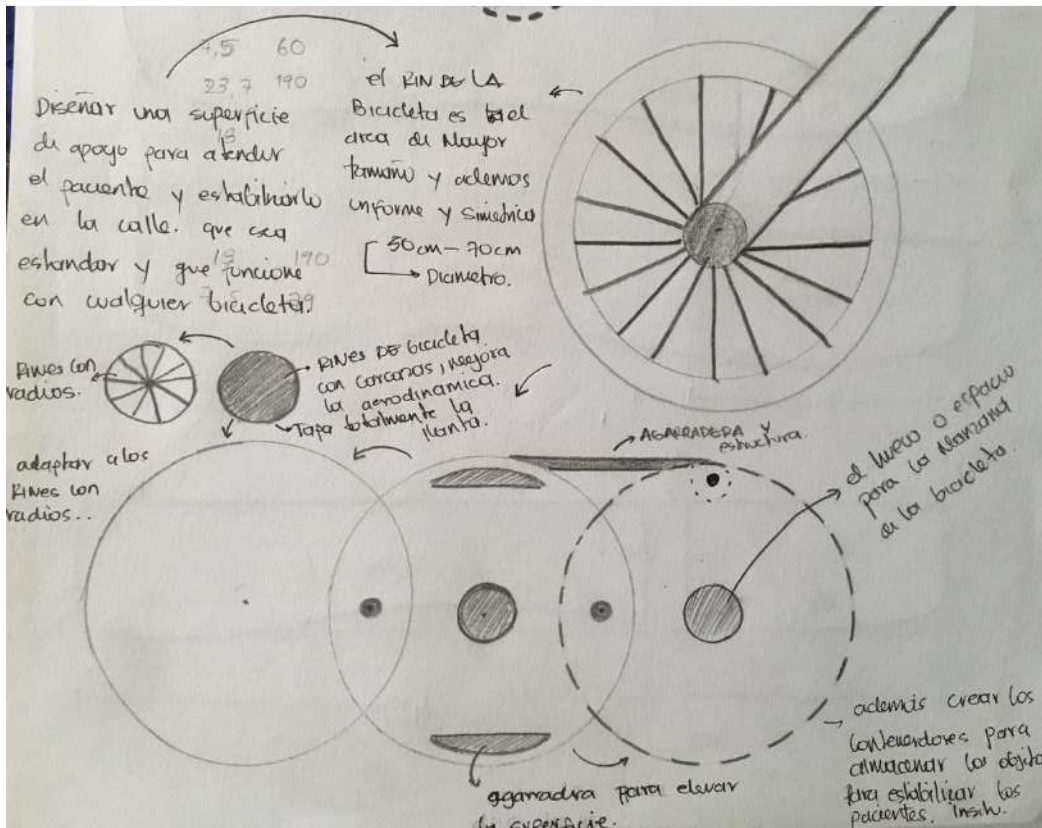 7,5 60
23,7 190
Diseñar una superficie
de apoyo para atender
el paciente y estabilizarlo
en la calle. que sea
estandar y que funcione
con cualquier bicicleta.
18
18
190
el RIN DE LA
Bicicleta es el
area de Mayor
tamaño y ademas
uniforme y simetrico
50cm – 70cm
Diametro.
Rines con
radios.
RINES DE bicicleta
con carcasas, mejora
la aerodinamica.
Tapa totalmente la
llanta.
adaptar a los
Rines con
radios..
AGARRADERA Y
estructura.
el hueco o espacio
para la Manzana
de la bicicleta.
agarradera para elevar
la superficie.
ademas crear los
contenedores para
almacenar los objetos
para estabilizar los
pacientes. Insitu.